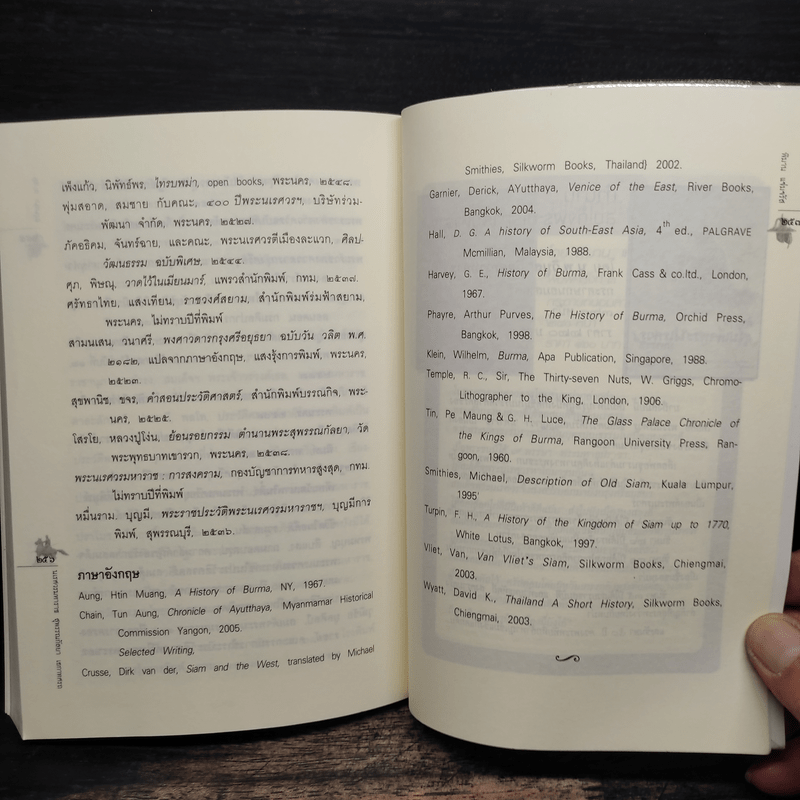 เพ็งแก้ว, นิพัทธ์พร, ไทรบพม่า, open books, พระนคร, ๒๕๔๘.
พุ่มสอาด, สมชาย กับคณะ, ๔๐๐ ปีพระนเรศวรฯ, บริษัทร่วม-
พัฒนา จำกัด, พระนคร, ๒๕๒๗.
ภัคอธิคม, จันทร์ฉาย, และคณะ, พระนเรศวรตีเมืองละแวก, ศิลป-
วัฒนธรรม ฉบับพิเศษ, ๒๕๔๔.
ศุภ, พิษณุ, วาดไว้ในเมียนมาร์, แพรวสำนักพิมพ์, กทม, ๒๕๓๗.
ศรัทธาไทย, แสงเทียน, ราชวงศ์สยาม, สำนักพิมพ์ร่มฟ้าสยาม,
พระนคร, ไม่ทราบปีที่พิมพ์
สามนเสน, วนาศรี, พงศาวดารกรุงศรีอยุธยา ฉบับวัน วลิต พ.ศ.
๒๑๘๒, แปลจากภาษาอังกฤษ, แสงรุ้งการพิมพ์, พระนคร,
๒๕๒๓.
สุขพานิช, ขจร, คำสอนประวัติศาสตร์, สำนักพิมพ์บรรณกิจ, พระ-
นคร, ๒๕๒๕.
โสรโย, หลวงปู่โง่น, ย้อนรอยกรรม ตำนานพระสุพรรณกัลยา, วัด
พระพุทธบาทเขารวก, พระนคร, ๒๕๓๘.
พระนเรศวรมหาราช : การสงคราม, กองบัญชาการทหารสูงสุด, กทม.
ไม่ทราบปีที่พิมพ์
หมื่นราม, บุญมี, พระราชประวัติพระนเรศวรมหาราชฯ, บุญมีการ
พิมพ์, สุพรรณบุรี, ๒๕๓๖.
ภาษาอังกฤษ
Aung, Htin Muang, A History of Burma, NY, 1967.
Chain, Tun Aung, Chronicle of Ayutthaya, Myanmarnar Historical
Commission Yangon, 2005.
Selected Writing,
Crusse, Dirk van der, Siam and the West, translated by Michael
๒๕๖
Smithies, Silkworm Books, Thailand} 2002.
Garnier, Derick, AYutthaya, Venice of the East, River Books,
Bangkok, 2004.
Hall, D. G. A history of South-East Asia, 4th ed., PALGRAVE
Mcmillian, Malaysia, 1988.
Harvey, G. E., History of Burma, Frank Cass & co.ltd., London,
1967.
Phayre, Arthur Purves, The History of Burma, Orchid Press,
Bangkok, 1998.
Klein, Wilhelm, Burma, Apa Publication, Singapore, 1988.
Temple, R. C., Sir, The Thirty-seven Nuts, W. Griggs, Chromo-
Lithographer to the King, London, 1906.
Tin, Pe Maung & G. H. Luce, The Glass Palace Chronicle of
the Kings of Burma, Rangoon University Press, Ran-
goon, 1960.
Smithies, Michael, Description of Old Siam, Kuala Lumpur,
1995'
Turpin, F. H., A History of the Kingdom of Siam up to 1770,
White Lotus, Bangkok, 1997.
Vliet, Van, Van Vliet's Siam, Silkworm Books, Chiengmai,
2003.
Wyatt, David K., Thailand A Short History, Silkworm Books,
Chiengmai, 2003.